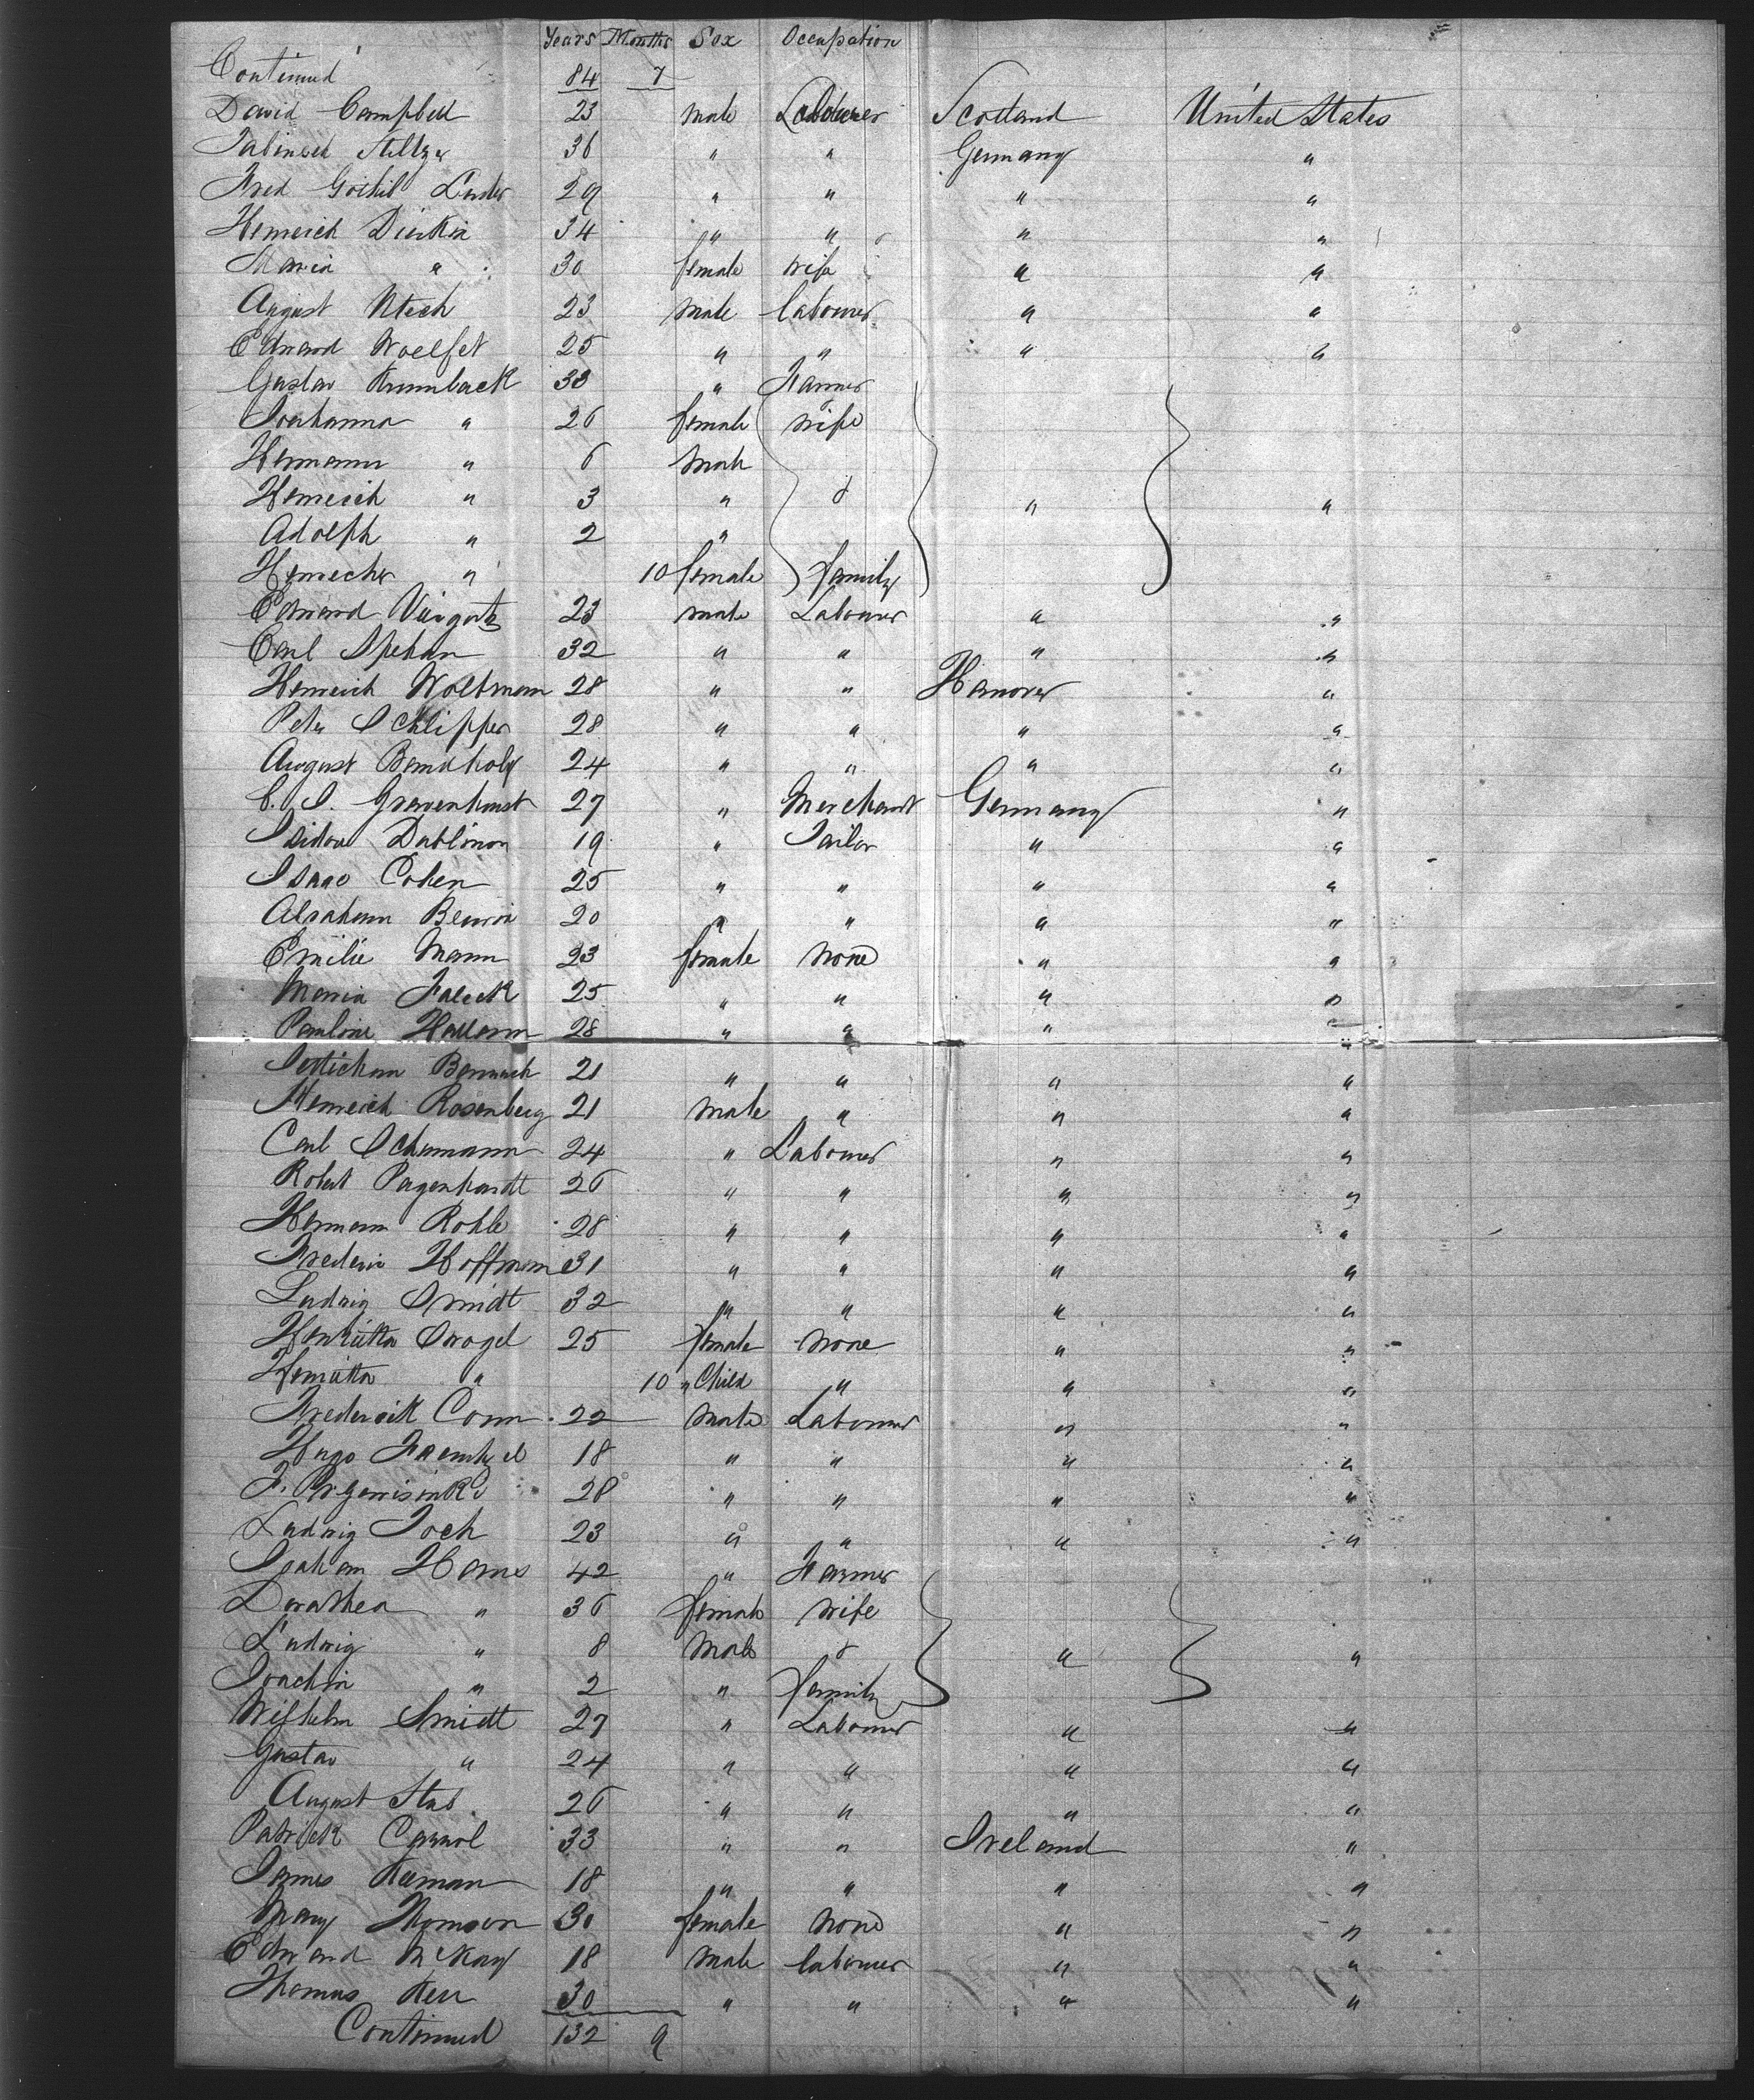 Years Months Sex Occupation
Continued 84 7
David Campbell 23 male Labourer Scotland United States
36 " " Germany "
Fred 29 " " " "
Heinrich 34 " " " "
Maria " 30 female wife " "
August Utech 23 male labourer " "
Edward Woelfel 25 " " " "
Gustav Krumback 33 " Farmer
Johanna " 26 female wife
Hermann " 6 male
Heinrich " 3 " & " "
Adolph " 2 "
" 10 female family
Edward 23 male Labourer " "
Carl Spehan 32 " " " "
Heinrich Woltmann 28 " " Hanover "
Peter Schlipper 28 " " " "
August 24 " " " "
C. S. Gravenhorst 27 " Merchant Germany "
Isidor 19 " Tailor " "
Isaac Cohen 25 " " " "
Abraham 20 " " " "
Emilie Mann 23 female none " "
Maria Faleck 25 " " " "
Pauline 28 " " " "
21 " " " "
Heinrich Rosenberg 21 male " " "
Carl Schumann 24 " Labourer " "
Robert Pagenhardt 26 " " " "
Hermann Rohle 28 " " " "
Frederic Hoffman 31 " " " "
Ludwig Smidt 32 " " " "
Henrietta 25 female none " "
Henrietta " 10 " Child " " "
Frederick Conn 22 male Labourer " "
Hugo Fraenkel 18 " " " "
F. 28 " " " "
Ludwig Joch 23 " " " "
Hans 42 " Farmer
Dorathea " 36 female wife
Ludwig " 8 male & " "
Joachin " 2 " family
Wilhelm Smidt 27 " Labourer " "
Gustav " 24 " " " "
August Stab 26 " " " "
Patrick Carrol 33 " " Ireland "
James Keeman 18 " " " "
Mary Thomson 30 female none " "
Edward McKay 18 male labourer " "
Thomas Kerr 30 " " " "
Continued 132 9